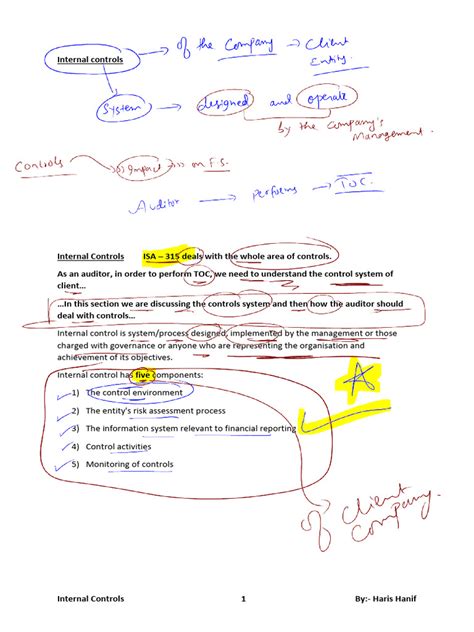 Internal controls
of the Company → Client
Entity.
System → designed and operate
by the Company's
Management.
Controls → Impact → on F.S.
Auditor → performs → TOC.
Internal Controls ISA – 315 deals with the whole area of controls.
As an auditor, in order to perform TOC, we need to understand the control system of
client…
…In this section we are discussing the controls system and then how the auditor should
deal with controls…
Internal control is system/process designed, implemented by the management or those
charged with governance or anyone who are representing the organisation and
achievement of its objectives.
Internal control has five components:
1) The control environment
2) The entity's risk assessment process
3) The information system relevant to financial reporting
4) Control activities
5) Monitoring of controls
of Client
Company.
Internal Controls 1 By:- Haris Hanif